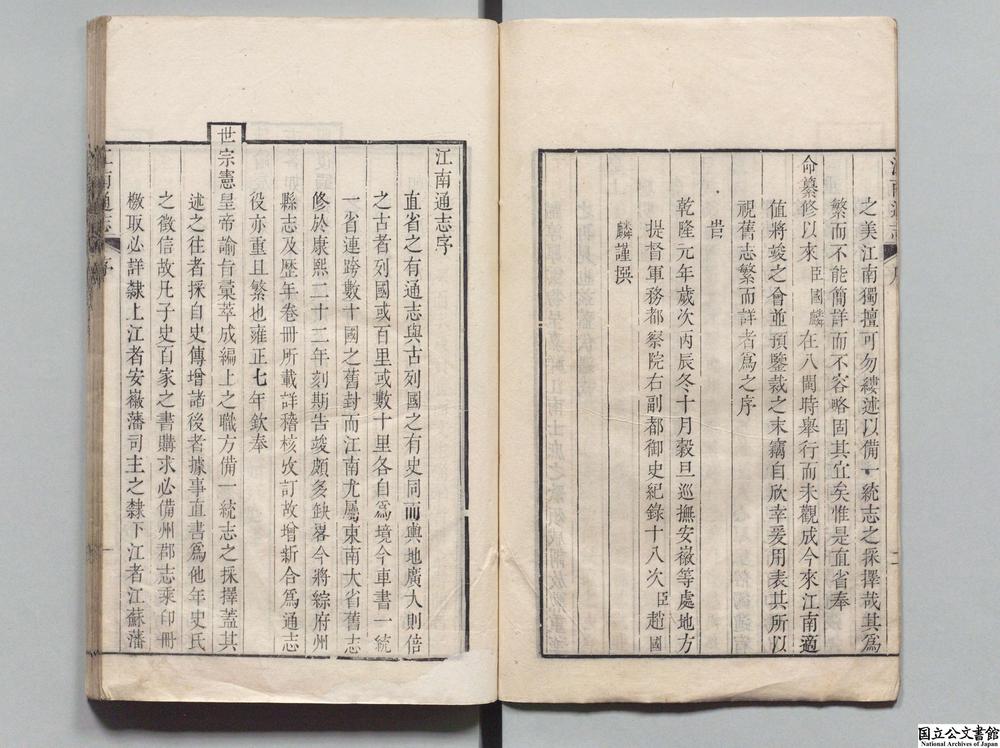 之美江南獨擅可勿縷述以備一統志之採擇哉其爲
繁而不能簡詳而不容略固其宜矣惟是直省奉
命纂修以來臣國麟在八閩時舉行而未觀成今來江南適
值將竣之會並預鑒裁之末竊自欣幸爰用表其所以
視舊志繁而詳者爲之序
旹
乾隆元年歲次丙辰冬十月穀旦巡撫安徽等處地方
提督軍務都察院右副都御史紀錄十八次臣趙國
麟謹撰
江南通志序
直省之有通志與古列國之有史同而輿地廣大則倍
之古者列國或百里或數十里各自爲境今車書一統
一省連跨數十國之舊封而江南尤屬東南大省舊志
修於康熙二十二年刻期告竣頗多缺畧今將綜府州
縣志及歷年卷冊所載詳稽核攷訂故增新合爲通志
役亦重且繁也雍正七年欽奉
世宗憲皇帝諭旨彙萃成編上之職方備一統志之採擇蓋其
述之往者採自史傳增諸後者據事直書爲他年史氏
之徵信故凡子史百家之書購求必備州郡志乘印冊
檄取必詳隸上江者安徽藩司主之隸下江者江蘇藩
江南通志
序
一
国立公文書館
National Archives of Japan